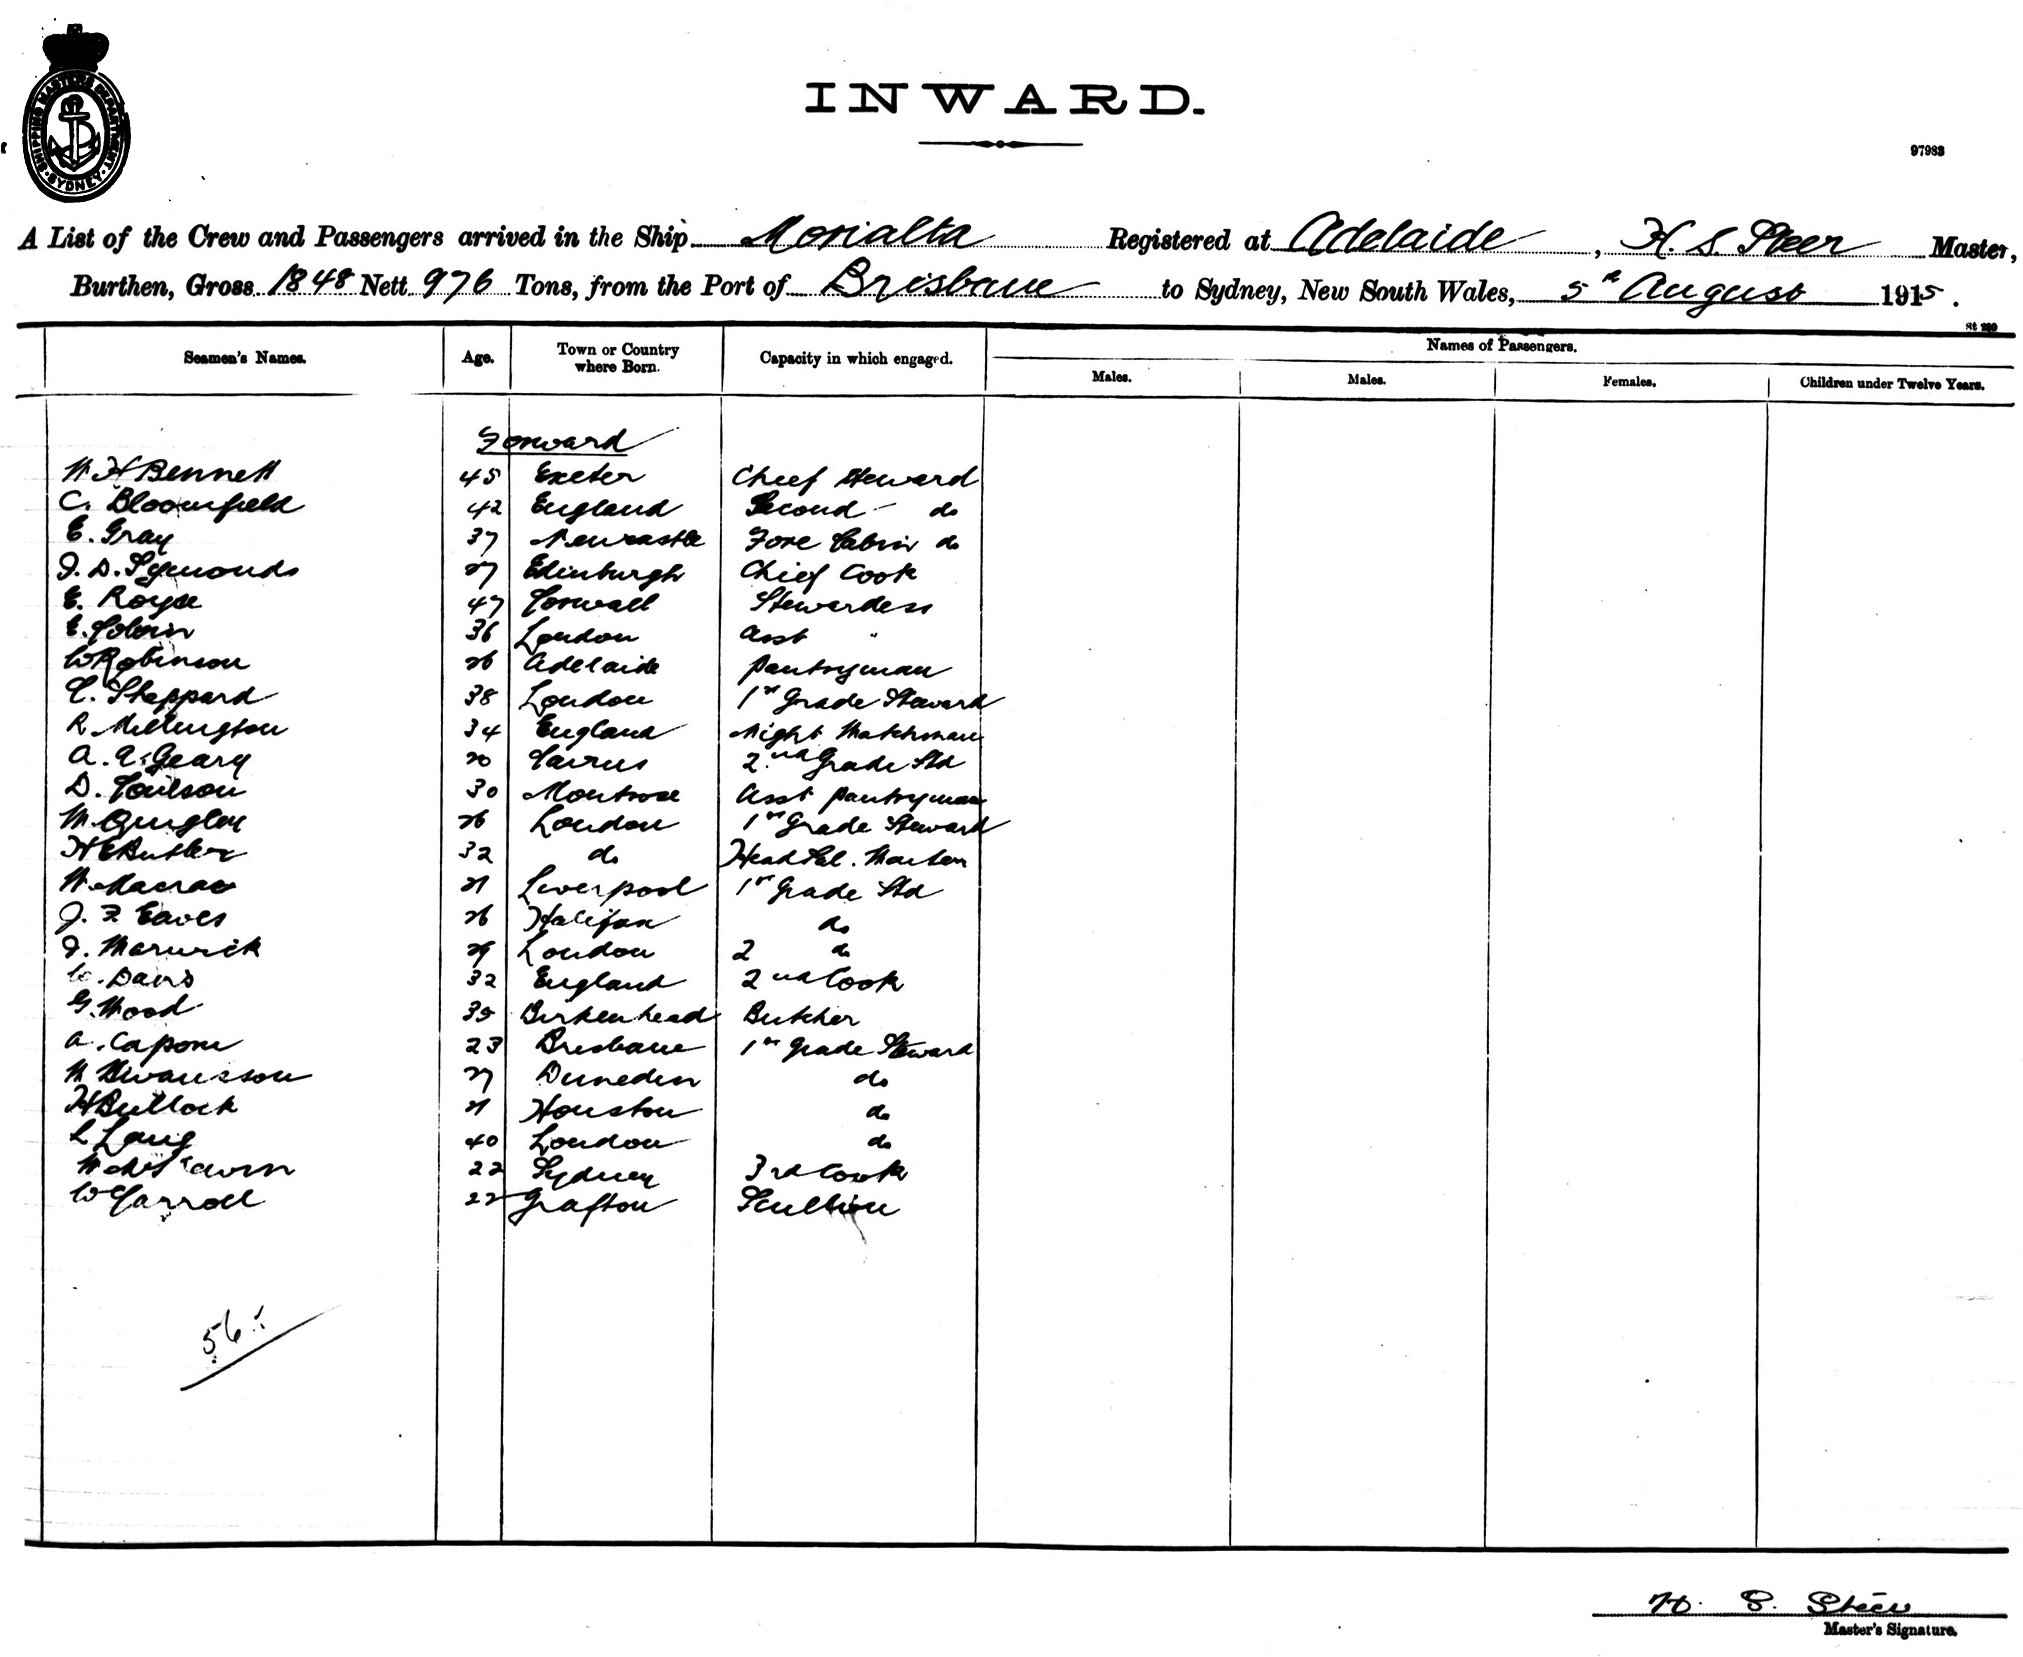 SHIPPING MASTERS DEPARTMENT
SYDNEY
INWARD.
97983
A List of the Crew and Passengers arrived in the Ship Morialta Registered at Adelaide, H. S. Steer Master,
Burthen, Gross 1848 Nett 976 Tons, from the Port of Brisbane to Sydney, New South Wales, 5th August 1915.
St 280
Seamen's Names. Age. Town or Country where Born. Capacity in which engaged. Names of Passengers.
Males. Males. Females. Children under Twelve Years.
Forward
W H Bennett 45 Exeter Chief Steward
C. Bloomfield 42 England Second do
E. Gray 37 Newcastle Fore Cabin do
J. D. Symonds 27 Edinburgh Chief Cook
E. Royse 47 Cornwall Stewardess
E. 36 London Asst "
W Robinson 26 Adelaide Pantryman
C. Sheppard 38 London 1st Grade Steward
R. Millington 34 England Night Watchman
A. A. Geary 20 Cairns 2nd Grade Std
D. Coulson 30 Montrose Asst Pantryman
W. Quigley 26 London 1st Grade Steward
H E Butler 32 do Head Sal. Waiter
W. Macrae 21 Liverpool 1st Grade Std
J. F. Eaves 26 Halifax do
J. Warwick 29 London 2 do
W. Davis 32 England 2nd Cook
G. Wood 39 Birkenhead Butcher
A. Capone 23 Brisbane 1st Grade Steward
W Swansson 27 Dunedin do
H Bullock 21 Houston do
L Lang 40 London do
W 22 Sydney 3rd Cook
W Carroll 22 Grafton Scullion
56
H. S. Steer
Master's Signature.